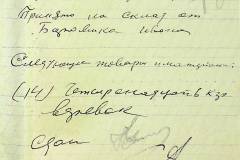 Принято на склад от
Следующие товары и материалы:
(14) Четырнадцать кгр
веревок
Сдал